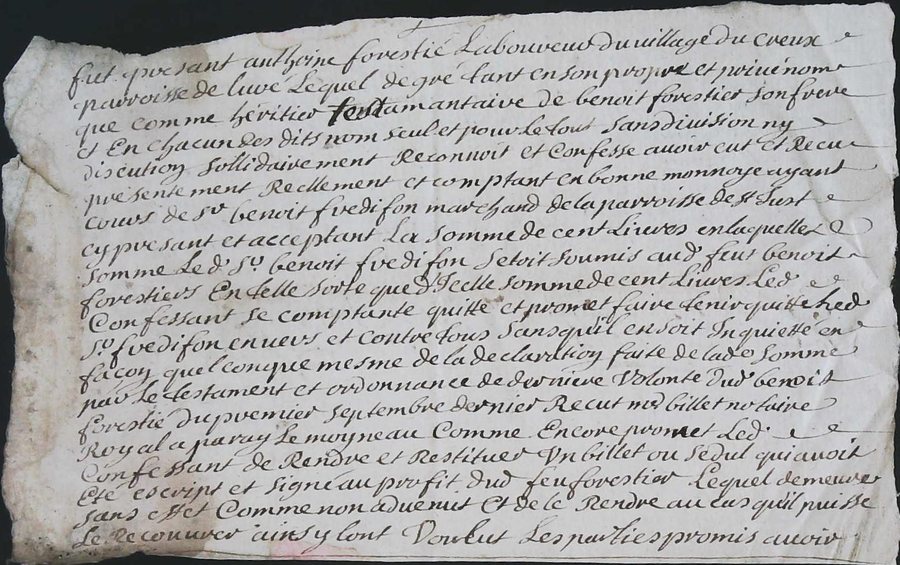 fut presant antheine forestié Laboureur du village du creux
parroisse de luré Lequel de gré tant en son propre et privé nom
que comme héritier testamantaire de benoit forestier son frere
et En chacun des dits nom seul et pour le tout sans division ny
discution sollidairement Reconnoit et Confesse avoir eut et Recu
présentement Reellement et comptant en bonne monnoye ayant
cours de Sr benoit fredifon marchand de la parroisse de St Just
cy presant et acceptant La somme de cent Livres en laquelle
somme Led Sr benoit fredifon setoit soumis aud feut benoit
forestiers En telle sorte que d'Icelle somme de cent Livres Led
Confessant se comptante quitte et promet faire tenir quitte Led
Sr fredifon envers et contre tous sans quil en soit Inquietté en
façon quelconque mesme de la declaration faite de lade somme
par Le testament et ordonnance de derniere Volonté dud benoit
forestié du premier septembre dernier Recut me billet notaire
Royal a paray Le moyneau Comme Encore promet Led
Confessant de Rendre et Restituer Un billet ou sedul qui avoit
Eté escript et signé au profit dud feu forestier Lequel demeure
sans effet Comme non advenut Et de le Rendre au cas quil puisse
Le Recouvrer ainsy lont Voulut Les parties promis avoir